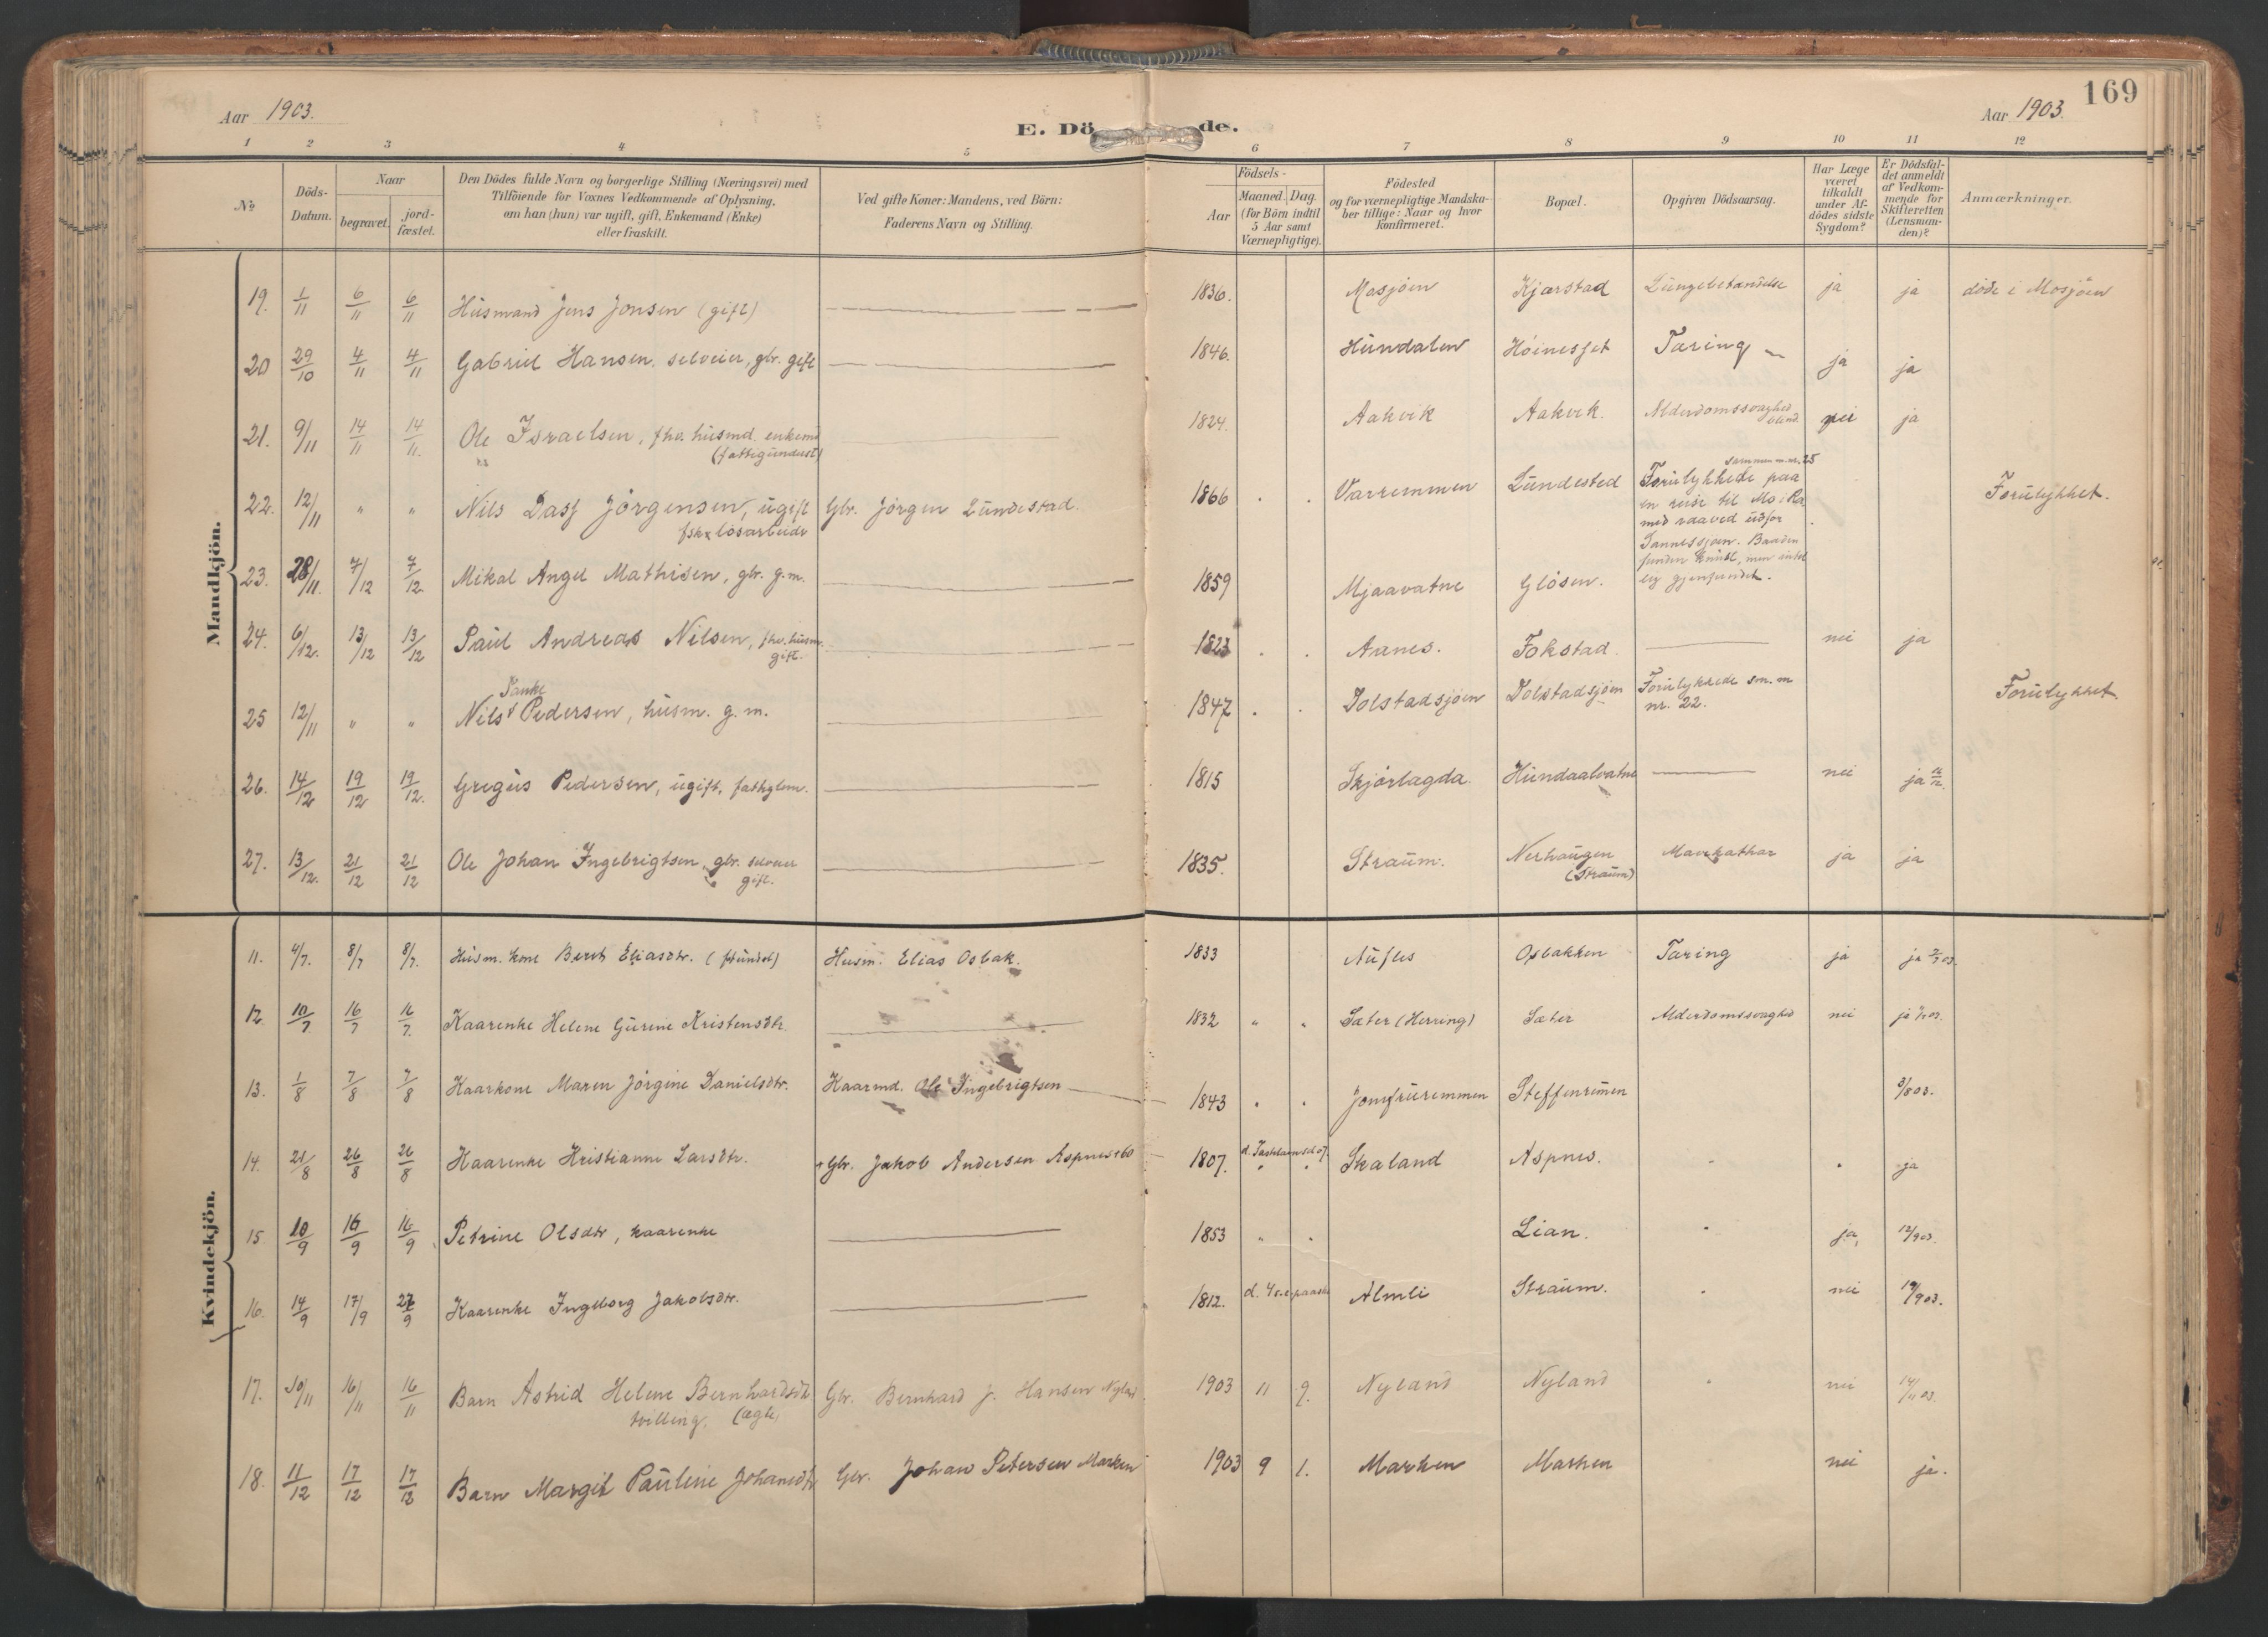 169
Aar 1903.
E. Dö de.
Aar 1903.
1 2 3 4 5 6 7 8 9 10 11 12
№
Döds-Datum.
Naar
begravet.
jord-fæstet.
Den Dödes fulde Navn og borgerlige Stilling (Næringsvei) med
Tilföiende for Voxnes Vedkommende af Oplysning,
om han (hun) var ugift, gift, Enkemand (Enke)
eller fraskilt.
Ved gifte Koner: Mandens, ved Börn:
Faderens Navn og Stilling.
Födsels-
Aar
Maaned. Dag.
(for Börn indtil
5 Aar samt
Værnepligtige).
Födested
og for værnepligtige Mandska-
ber tillige: Naar og hvor
konfirmeret.
Bopæl.
Opgiven Dödsaarsag.
Har Læge
været
tilkaldt
under Af-
dödes sidste
Sygdom?
Er Dödsfal-
det anmeldt
af Vedkom-
mende for
Skifteretten
(Lensman-
den)?
Anmærkninger.
Mandkjön.
19. 1/11 6/11 6/11 Husmand Jens Jonsen (gift) 1836. Mosjöen Kjærstad Lungebetændelse ja ja döde i Mosjöen
20 29/10 4/11 4/11 Gabriel Hansen. selveier, gbr. gift 1846. Hundalen Höinesset Tæring ja ja
21. 9/11 14/11 14/11. Ole Israelsen, fhv. husmd. enkemd
(fattigunderst) 1824. Aakvik Aakvik. Alderdomssvaghed
blind. nei ja
22. 12/11 " " Nils Dass Jörgensen, ugift
fsk. lösarbeider Gbr. Jörgen Lundestad. 1866 Varremmen Lundested
sammen m. nr. 25
Forulykkede paa
en reise til Mo i Ra
med raaved udfor
Sannessjöen. Baaden
funden knust, men intet
lig gjenfundet. Forulykket.
23. 28/11. 7/12 7/12 Mikal Angel Mathisen, gbr. g.m. 1859 Mjaavatne Glösen.
24. 6/12. 13/12 13/12 Paul Andreas Nilsen, fhv. husm.
gift. 1823 Aanes. Fokstad. nei ja
25 12/11 " " Nils Pedersen, husm. g.m. 1847 Dolstadsjöen Dolstadsjöen Forulykkede sm. m
nr. 22. Forulykket
26. 14/12 19/12 19/12. Gregus Pedersen, ugift, fattiglem. 1815 Skjörlagda. Hundaalvatne nei ja 16/12.
27. 13/12. 21/12 21/12 Ole Johan Ingebrigtsen, gbr. selveier
gift. 1835. Straum. Nerhaugen
(Straum) Mavekathar ja ja
Kvindekjön.
11. 4/7. 8/7 8/7. Husm. kone Berit Eliasdtr. Husm. Elias Osbak. 1833 Nufles Osbakken Tæring ja ja
12. 10/7 16/7 16/7. Kaarenke Helene Gurine Kristensdtr. 1832 " " Sæter (Herring) Sæter Alderdomssvaghed nei ja
13. 1/8 7/8 7/8 Kaarkone Maren Jörgine Danielsdtr. Kaarmd. Ole Ingebrigtsen 1843 Jomfruremmen Steffenremen 3/8 03.
14. 21/8 26/8 26/8 Kaarenke Kristianne Larsdtr. Gbr. Jakob Andersen Aspnes 1807. Skaland Aspnes. ja
15. 10/9 16/9 16/9 Petrine Olsdtr, kaarenke 1853 " Lian. ja, 12/9 03.
16. 14/9 17/9 27/9 Kaarenke Ingeborg Jakobsdtr. 1812. d. 4 s. e. paaske Almli Straum. nei 19/9 03.
17. 10/11 16/11 16/11 Barn Astrid Helene Bernhardsdtr
tvilling, (ægte) Gbr. Bernhard J. Hansen Nyland 1903 11 9. Nyland Nyland nei 14/11 03.
18. 11/12 17/12 17/12 Barn Margit Pauline Johansdtr Gbr. Johan Petersen Marken 1903 9 1. Marken Marken nei ja.